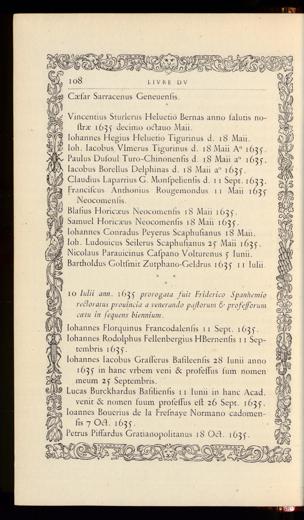 108 LIVRE DV
Cæſar Sarracenus Geneuenſis.
Vincentius Sturlerus Heluetio Bernas anno ſalutis no-
ſtræ 1635 decimo octauo Maii.
Iohannes Hegius Heluetio Tigurinus d. 18 Maii.
Ioh. Iacobus Vlmerus Tigurinus d. 18 Maii Aº 1635.
Paulus Dufoul Turo-Chinonenſis d. 18 Maii aº 1635.
Iacobus Borellus Delphinas d. 18 Maii aº 1635.
Claudius Laparrius G. Monſpelienſis d. 11 Sept. 1633.
Franciſcus Anthonius Rougemondus 11 Maii 1635
Neocomenſis.
Blaſius Horicæus Neocomenſis 18 Maii 1635.
Samuel Horicæus Neocomenſis 18 Maii 1635.
Iohannes Conradus Peyerus Scaphuſianus 18 Maii.
Ioh. Ludouicus Seilerus Scaphuſianus 25 Maii 1635.
Nicolaus Parauicinus Caſpano Volturenus 5 Iunii.
Bartholdus Goltſmit Zutphano-Geldrus 1635 11 Iulii.
10 Iulii ann. 1635 prorogata fuit Friderico Spanhemio
rectoratus prouincia a venerando paſtorum & profeſſorum
cœtu in ſequens biennium.
Iohannes Florquinus Francodalenſis 11 Sept. 1635.
Iohannes Rodolphus Fellenbergius HBernenſis 11 Sep-
tembris 1635.
Iohannes Iacobus Graſſerus Baſileenſis 28 Iunii anno
1635 in hanc vrbem veni & profeſſus ſum nomen
meum 25 Septembris.
Lucas Burckhardus Baſilienſis 11 Iunii in hanc Acad.
venit & nomen ſuum profeſſus eſt 26 Sept. 1635.
Ioannes Bouerius de la Freſnaye Normano cadomen-
ſis 7 Oct. 1635.
Petrus Piſſardus Gratianopolitanus 18 Oct. 1635.